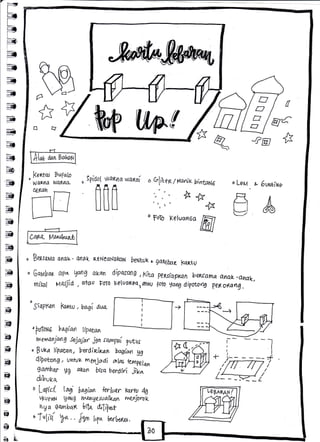 kartu lebaran
Pop Up!
Alat dan Bahan
Kertas Bufalo
warna warna
cerah
Spidol warna warni
Glitter / Manik bintang
Foto keluarga
Lem & Gunting
Cara Membuat
Bersama anak-anak rencanakan bentuk & gambar kartu
Gambar apa yang akan dipasang, kita persiapkan bersama anak-anak,
misal Masjid, atau Foto keluarga, atau foto yang dipotong perorang.
Siapkan kartu, bagi dua
potong bagian lipatan
memanjang sejajar jgn sampai putus
Buka lipatan, berdirikan bagian yg
dipotong, untuk menjadi alas tempelan
gambar yg akan bisa berdiri jika
dibuka
Lapisi lagi bagian terluar kartu dg
yang menyesuaikan
nya gambar bila dilipat
LEBARAN
30